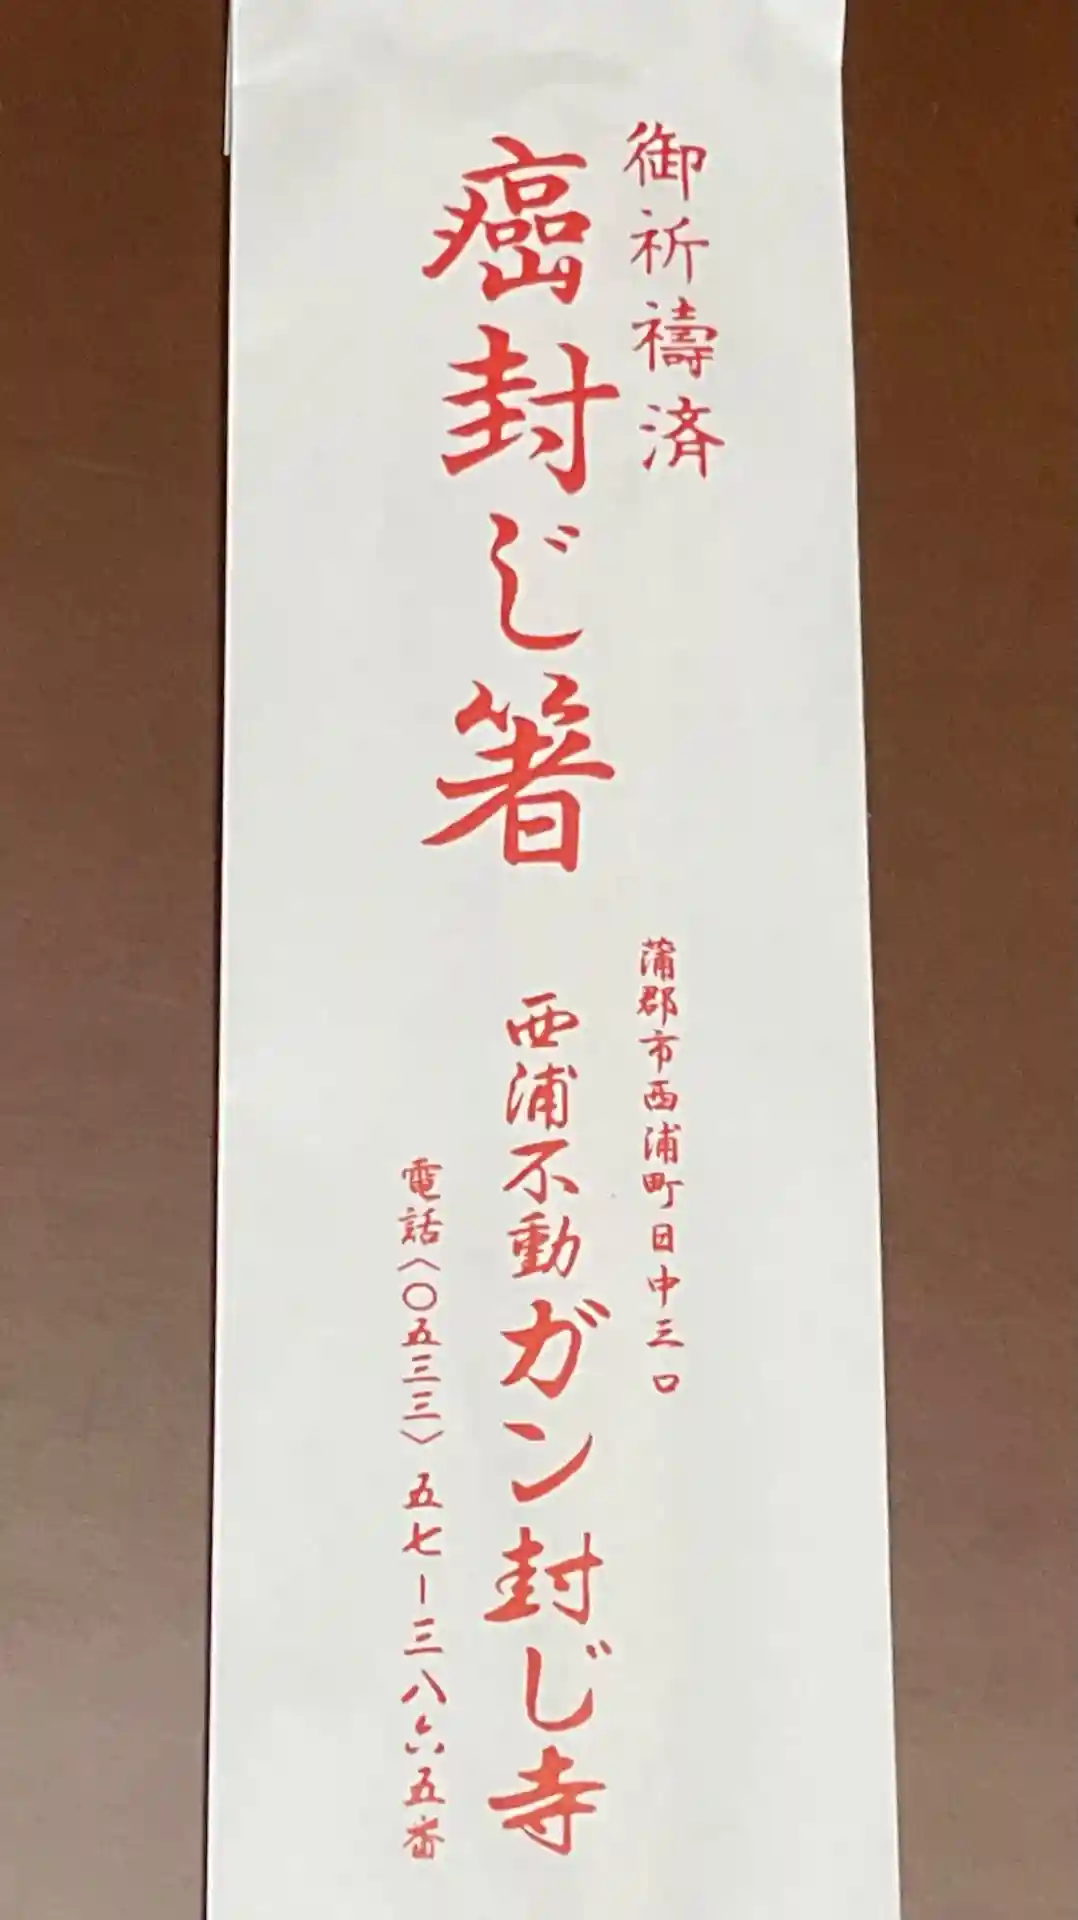 御祈禱済
癌封じ箸
蒲郡市西浦町日中三口
西浦不動ガン封じ寺
電話〈〇五三三〉五七ー三八六五番